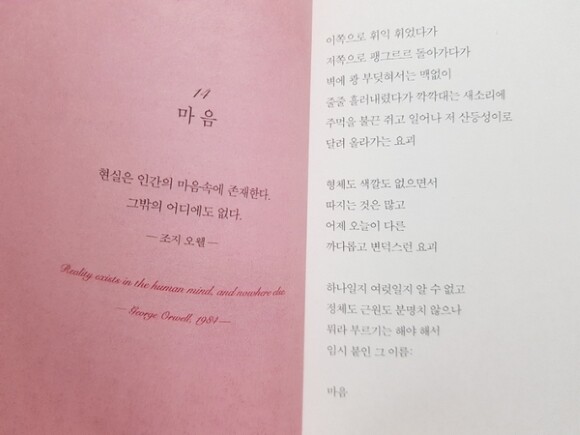 14
마음
현실은 인간의 마음속에 존재한다.
그밖의 어디에도 없다.
— 조지 오웰 —
Reality exists in the human mind, and nowhere else
— George Orwell, 1984 —
이쪽으로 휘익 휘었다가
저쪽으로 팽그르르 돌아가다가
벽에 쾅 부딪혀서는 맥없이
줄줄 흘러내렸다가 깍깍대는 새소리에
주먹을 불끈 쥐고 일어나 저 산등성이로
달려 올라가는 요괴
형체도 색깔도 없으면서
따지는 것은 많고
어제 오늘이 다른
까다롭고 변덕스런 요괴
하나일지 여럿일지 알 수 없고
정체도 근원도 분명치 않으나
뭐라 부르기는 해야 해서
임시 붙인 그 이름:
마음